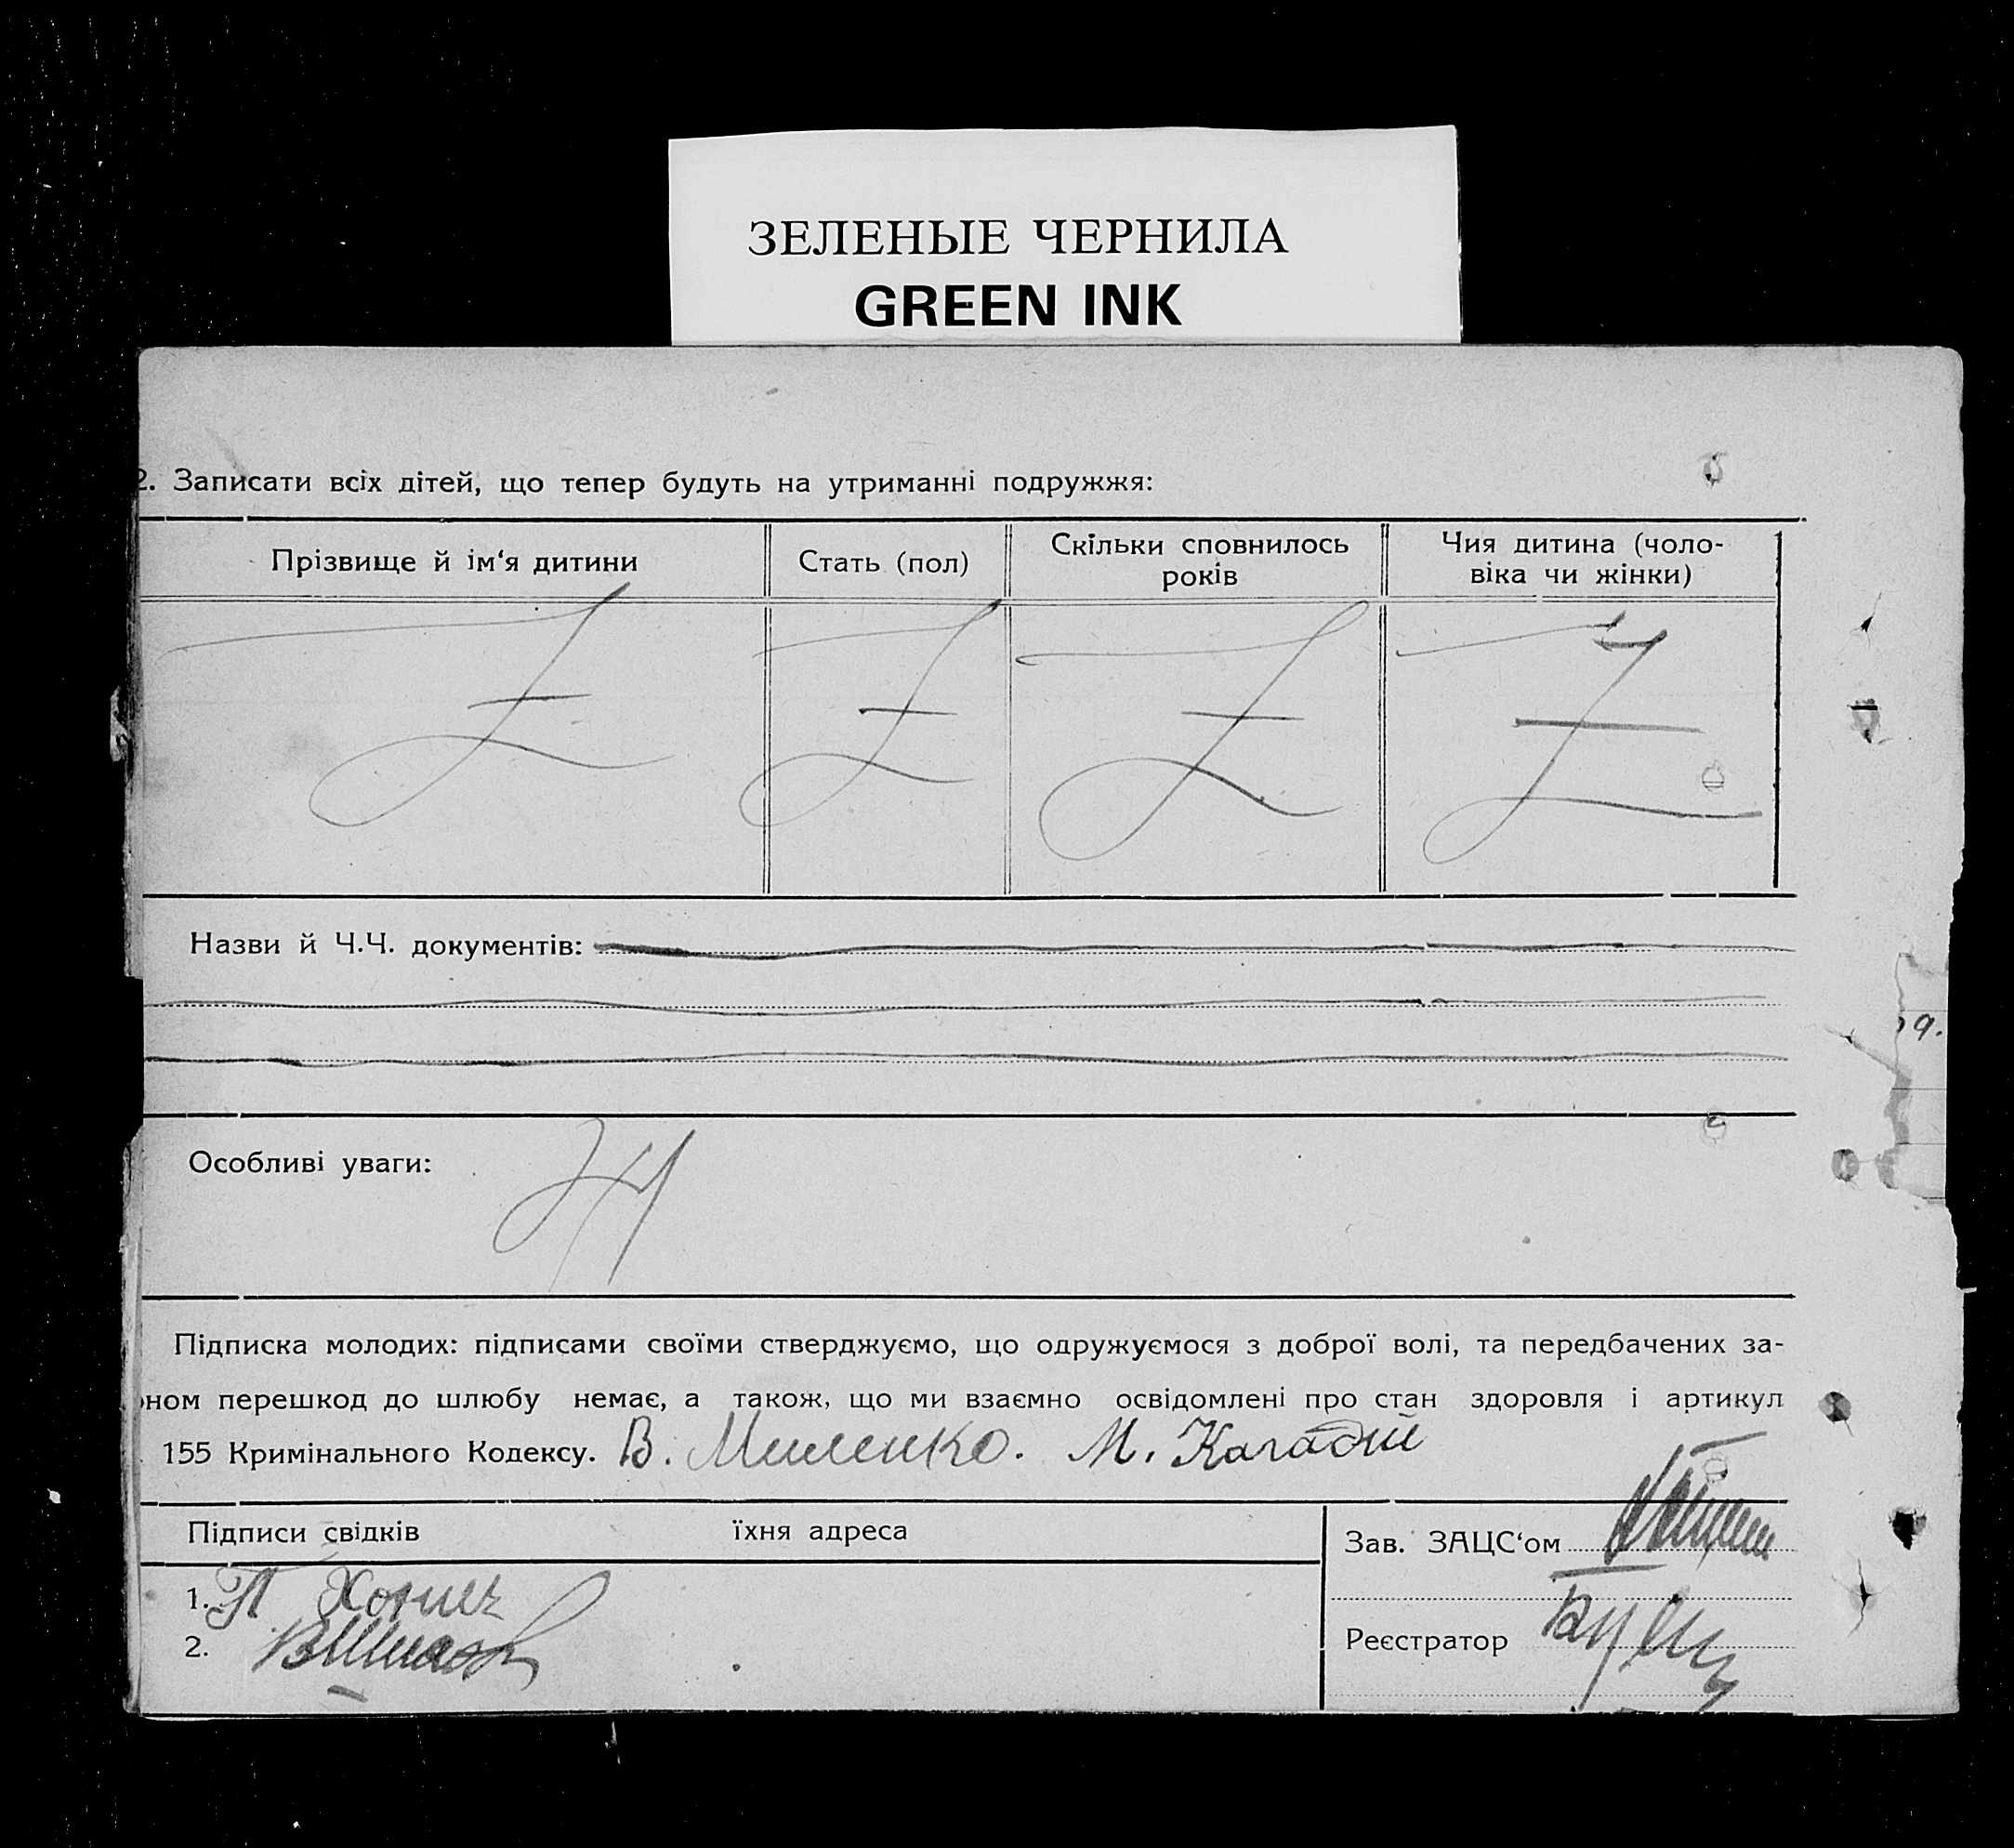 ЗЕЛЕНЫЕ ЧЕРНИЛА
GREEN INK
2. Записати всіх дітей, що тепер будуть на утриманні подружжя:
Прізвище й ім‘я дитини
Стать (пол)
Скільки сповнилось
років
Чия дитина (чоло-
віка чи жінки)
Назви й Ч.Ч. документів:
Особливі уваги:
Підписка молодих: підписами своїми стверджуємо, що одружуємося з доброї волі, та передбачених за-
ном перешкод до шлюбу немає, а також, що ми взаємно освідомлені про стан здоровля і артикул
155 Кримінального Кодексу. В. Миленко. М.
Підписи свідків їхня адреса
Зав. ЗАЦС‘ом
1. П
2.
Реєстратор